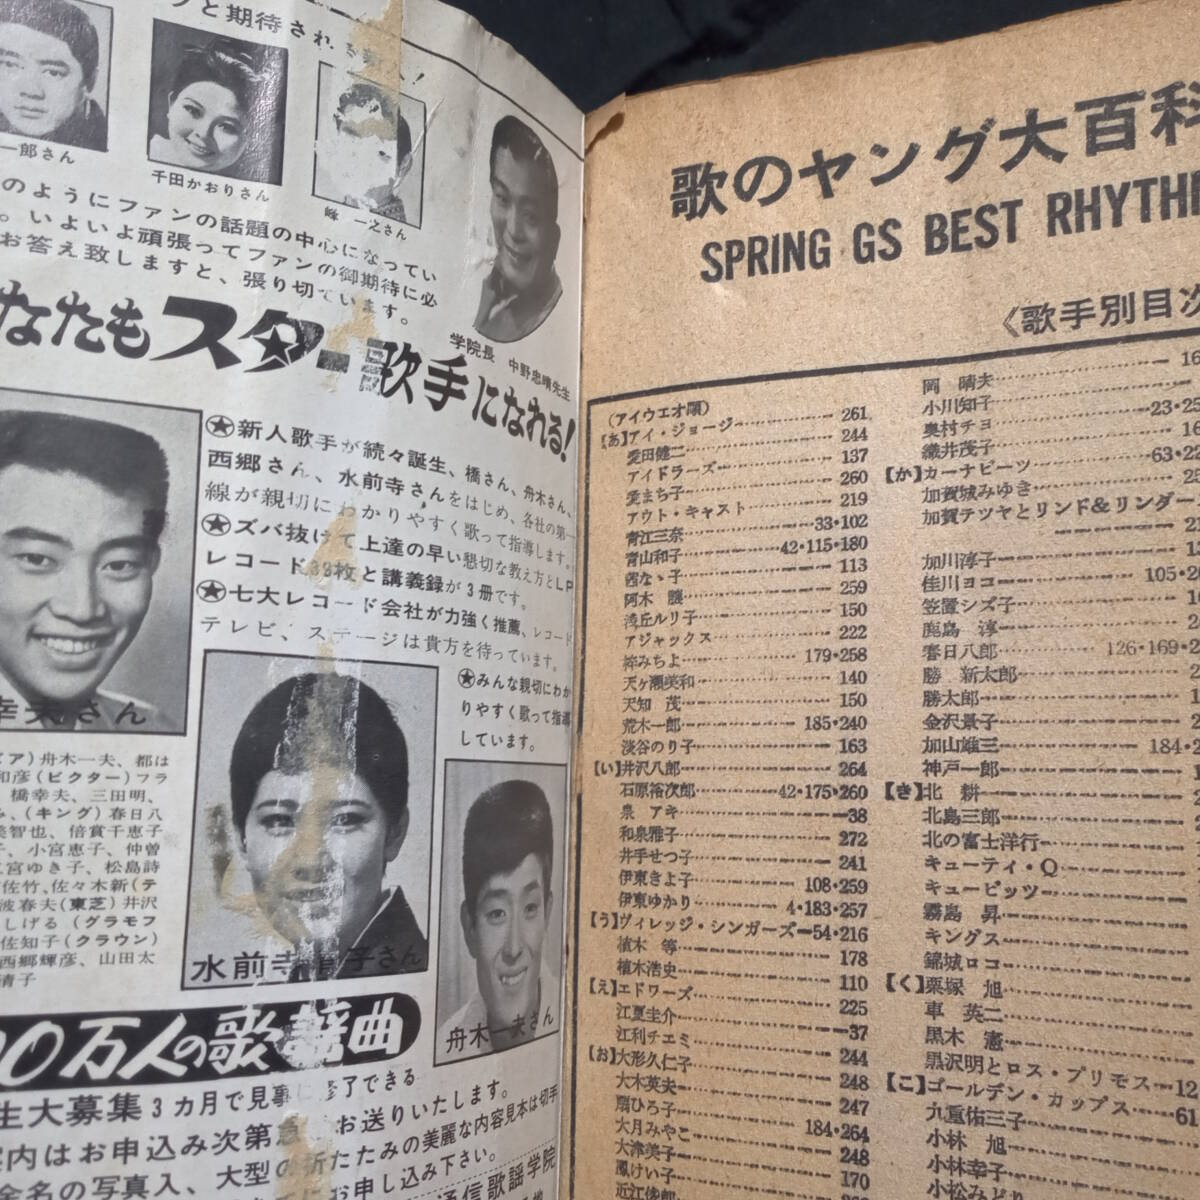 と期待され
一郎さん
千田かおりさん
峰 一之さん
のようにファンの話題の中心になってい
。いよいよ頑張ってファンの御期待に必
お答え致しますと、張り切ています。
学院長 中野忠晴先生
なたもスター歌手になれる!
★新人歌手が続々誕生、橋さん、舟木さん、
西郷さん、水前寺さんをはじめ、各社の第一
線が親切にわかりやすく歌って指導します。
★ズバ抜けて上達の早い懇切な教え方とLP
レコード 枚と講義録が3冊です。
★七大レコード会社が力強く推薦、レコード
テレビ、ステージは貴方を待っています。
★みんな親切にわか
りやすく歌って指導
しています。
幸夫さん
水前寺清子さん
舟木一夫さん
ア)舟木一夫、都は
和彦(ビクター)フラ
橋幸夫、三田明、
(キング)春日八
美智也、倍賞千恵子
子、小宮恵子、仲曽
二宮ゆき子、松島詩
佐竹、佐々木新(テ
波春夫(東芝)井沢
しげる(グラモフ
佐知子(クラウン)
西郷輝彦、山田太
清子
00万人の歌謡曲
生大募集 3カ月で見事に修了できる
案内はお申込み次第急 お送りいたします。
金名の写真入、大型の折たたみの美麗な内容見本は切手
お申し込み下さい。
通信歌謡学院
歌のヤング大百科
SPRING GS BEST RHYTH
《歌手別目次
(アイウエオ順)
【あ】アイ・ジョージ 261
愛田健二 244
アイドラーズ 137
愛まち子 260
アウト・キャスト 219
青江三奈 33・102
青山和子 42・115・180
茜なゝ子 113
阿木 譲 259
浅丘ルリ子 150
アジャックス 222
梓みちよ 179・258
天ヶ瀬美和 140
天知 茂 150
荒木一郎 185・240
淡谷のり子 163
【い】井沢八郎 264
石原裕次郎 42・175・260
泉 アキ 38
和泉雅子 272
井手せつ子 241
伊東きよ子 108・259
伊東ゆかり 4・183・257
【う】ヴィレッジ・シンガーズ 54・216
植木 等 178
植木浩史
【え】エドワーズ 110
江夏圭介 225
江利チエミ 37
【お】大形久仁子 244
大木英夫 248
扇ひろ子 247
大月みやこ 184・264
大津美子 248
鳳けい子 170
近江俊郎
岡 晴夫 16
小川知子
奥村チヨ 23・25
織井茂子 16
【か】カーナビーツ 63・22
加賀城みゆき 25
加賀テツヤとリンド&リンダース
加川淳子
佳川ヨコ 105・20
笠置シズ子
鹿島 淳
春日八郎 126・169・2
勝 新太郎
勝太郎
金沢景子
加山雄三 184・2
神戸一郎
【き】北 耕
北島三郎
北の富士洋行
キューティ・Q
キューピッツ
霧島 昇
キングス
錦城ロコ
【く】粟塚 旭
車 英二
黒木 憲
黒沢明とロス・プリモス 12
【こ】ゴールデン・カップス 61
九重佑三子
小林 旭
小林幸子
小松みどり